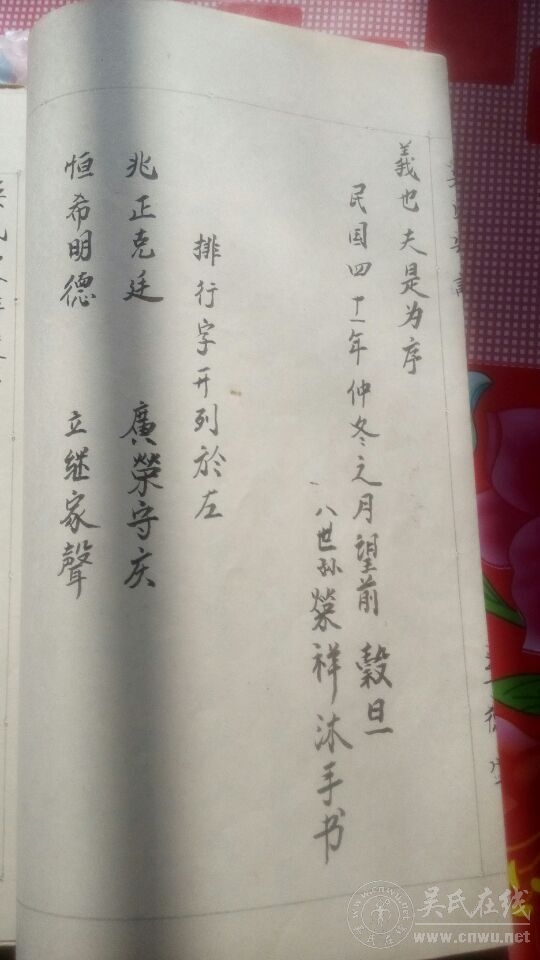 義也夫是为序
民国四十一年仲冬之月望前 穀旦
八世孙榮祥沐手书
排行字开列於左
兆正克廷 廣榮守庆
恒希明德 立继家聲
吴氏在线
www.cnwu.net